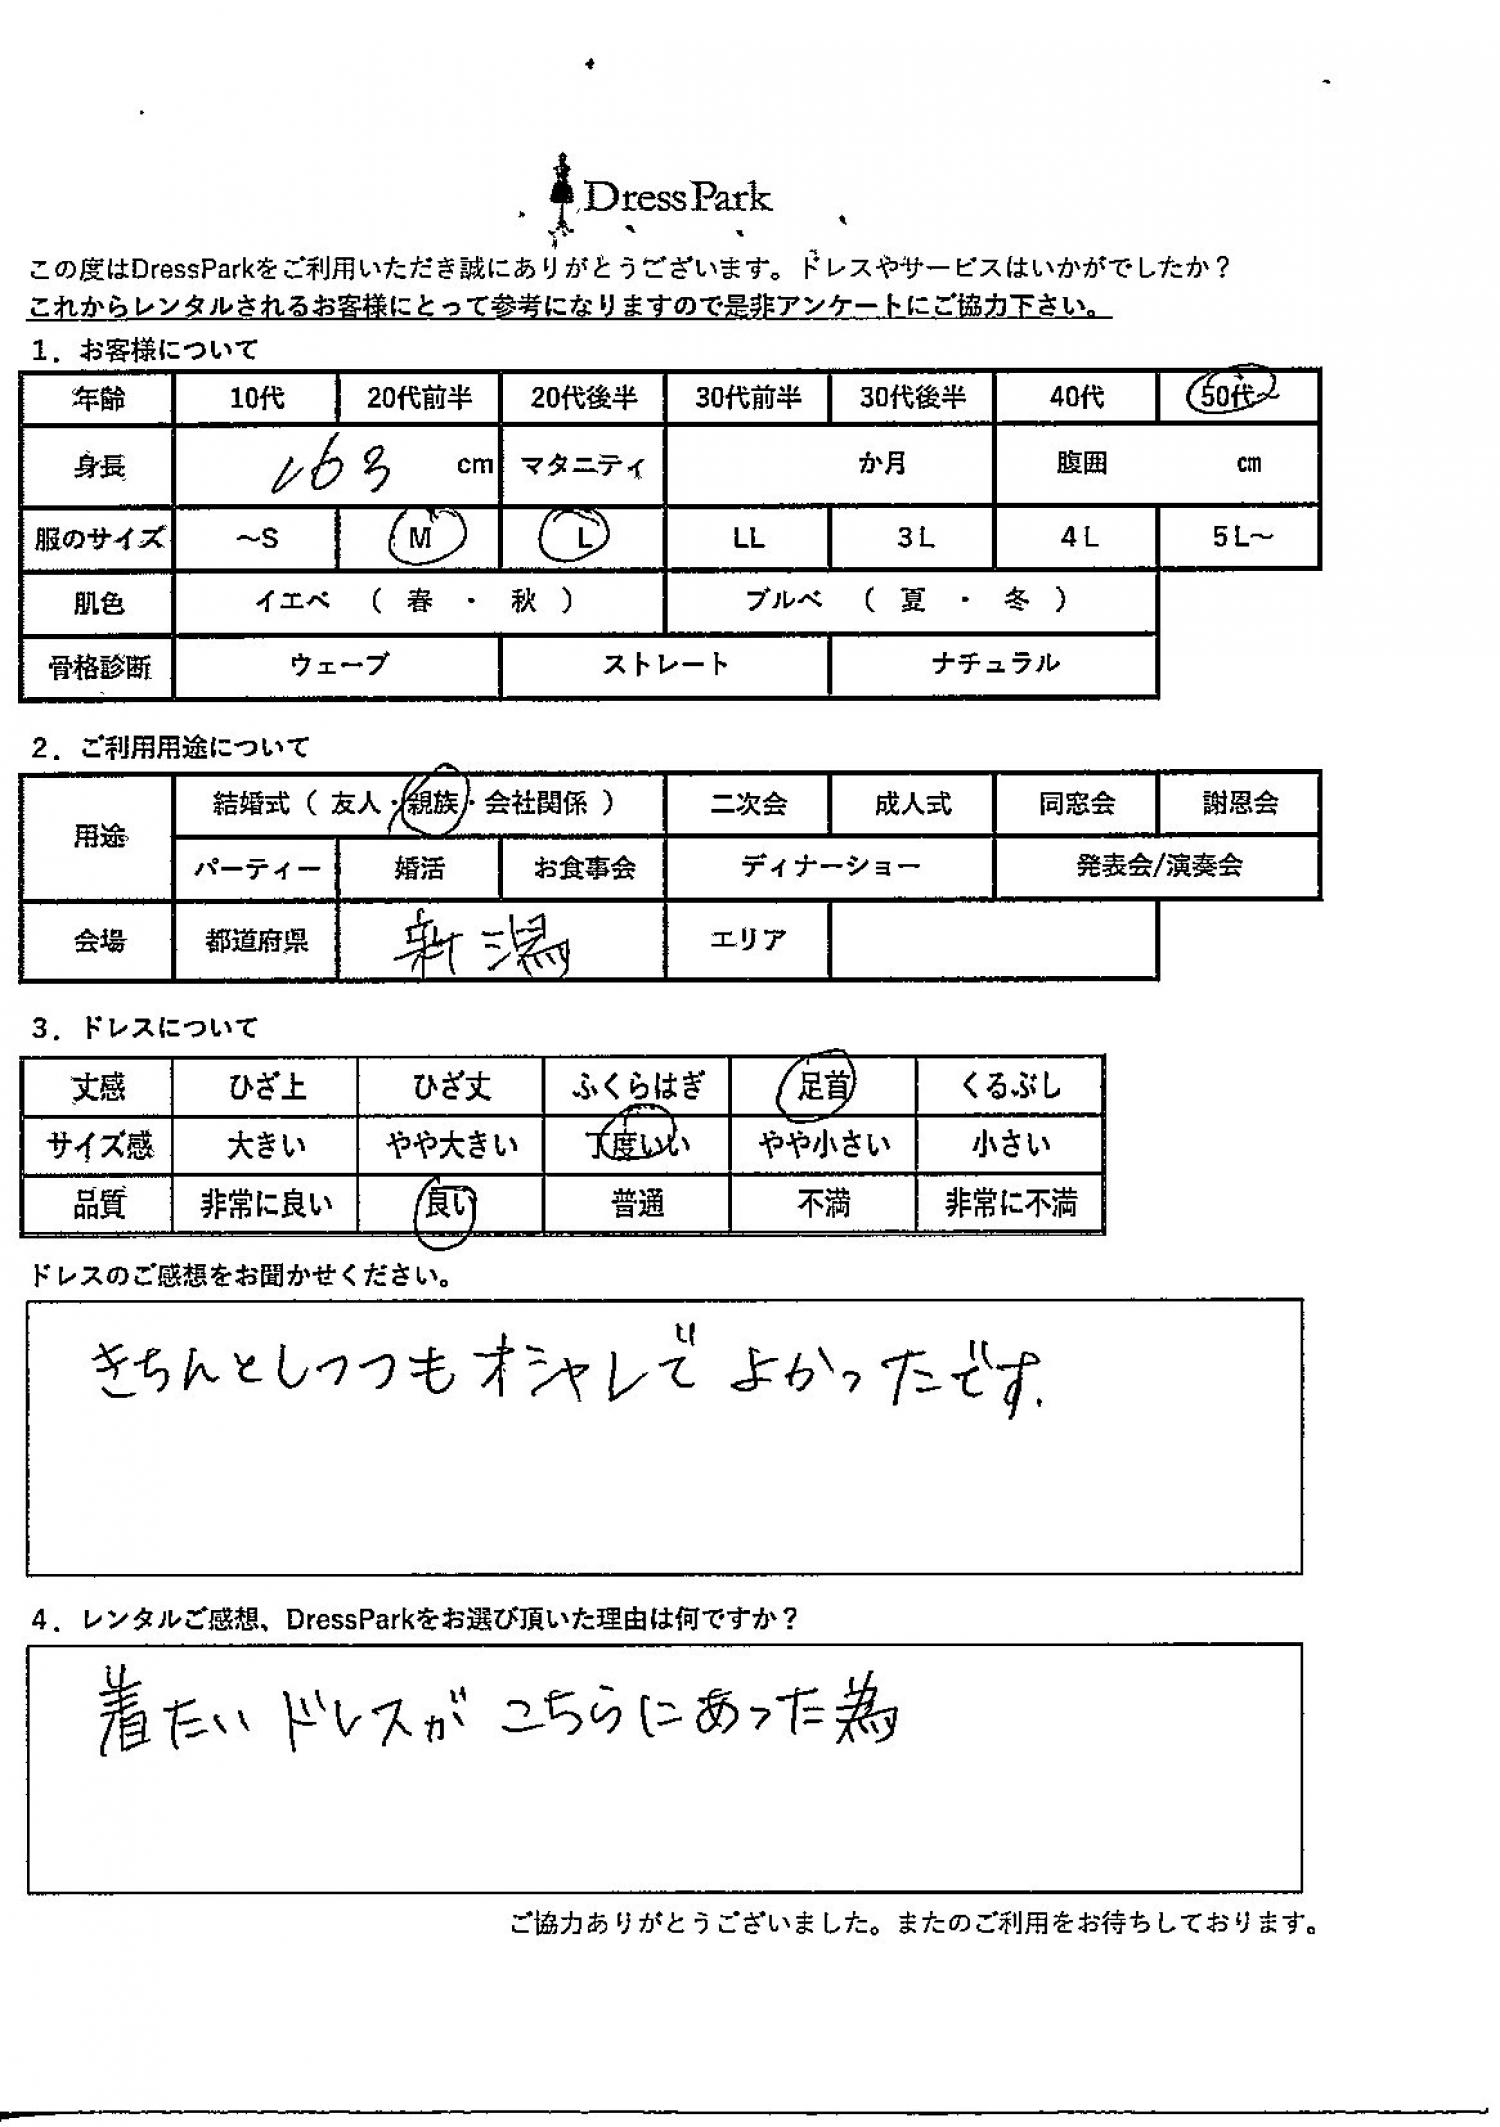 DressPark
この度はDressParkをご利用いただき誠にありがとうございます。ドレスやサービスはいかがでしたか？
これからレンタルされるお客様にとって参考になりますので是非アンケートにご協力下さい。
1．お客様について
年齢 10代 20代前半 20代後半 30代前半 30代後半 40代 50代~
身長 163 cm マタニティ か月 腹囲 cm
服のサイズ ～S M L LL 3L 4L 5L～
肌色 イエベ （ 春 ・ 秋 ） ブルベ （ 夏 ・ 冬 ）
骨格診断 ウェーブ ストレート ナチュラル
2．ご利用用途について
用途 結婚式（ 友人・親族・会社関係 ） 二次会 成人式 同窓会 謝恩会
パーティー 婚活 お食事会 ディナーショー 発表会/演奏会
会場 都道府県 新潟 エリア
3．ドレスについて
丈感 ひざ上 ひざ丈 ふくらはぎ 足首 くるぶし
サイズ感 大きい やや大きい 丁度いい やや小さい 小さい
品質 非常に良い 良い 普通 不満 非常に不満
ドレスのご感想をお聞かせください。
きちんとしつつもオシャレでよかったです.
4．レンタルご感想、DressParkをお選び頂いた理由は何ですか？
着たいドレスがこちらにあった為
ご協力ありがとうございました。またのご利用をお待ちしております。